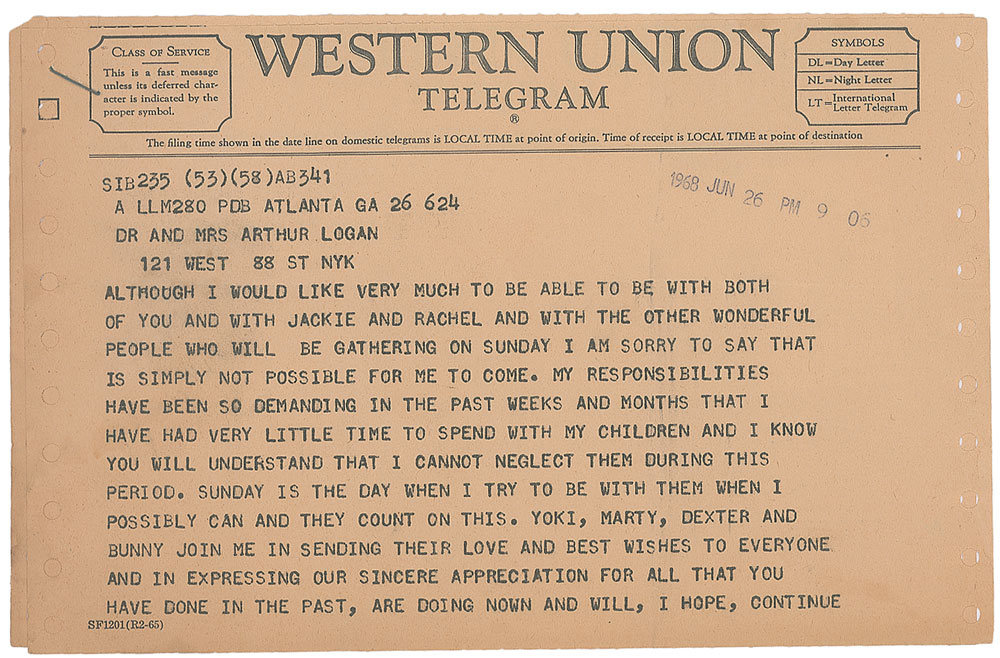 CLASS OF SERVICE
This is a fast message
unless its deferred char-
acter is indicated by the
proper symbol.
WESTERN UNION
TELEGRAM
®
SYMBOLS
DL=Day Letter
NL=Night Letter
LT=International
Letter Telegram
The filing time shown in the date line on domestic telegrams is LOCAL TIME at point of origin. Time of receipt is LOCAL TIME at point of destination
SIB235 (53)(58)AB341
1968 JUN 26 PM 9 06
A LLM280 PDB ATLANTA GA 26 624
DR AND MRS ARTHUR LOGAN
121 WEST 88 ST NYK
ALTHOUGH I WOULD LIKE VERY MUCH TO BE ABLE TO BE WITH BOTH
OF YOU AND WITH JACKIE AND RACHEL AND WITH THE OTHER WONDERFUL
PEOPLE WHO WILL BE GATHERING ON SUNDAY I AM SORRY TO SAY THAT
IS SIMPLY NOT POSSIBLE FOR ME TO COME. MY RESPONSIBILITIES
HAVE BEEN SO DEMANDING IN THE PAST WEEKS AND MONTHS THAT I
HAVE HAD VERY LITTLE TIME TO SPEND WITH MY CHILDREN AND I KNOW
YOU WILL UNDERSTAND THAT I CANNOT NEGLECT THEM DURING THIS
PERIOD. SUNDAY IS THE DAY WHEN I TRY TO BE WITH THEM WHEN I
POSSIBLY CAN AND THEY COUNT ON THIS. YOKI, MARTY, DEXTER AND
BUNNY JOIN ME IN SENDING THEIR LOVE AND BEST WISHES TO EVERYONE
AND IN EXPRESSING OUR SINCERE APPRECIATION FOR ALL THAT YOU
HAVE DONE IN THE PAST, ARE DOING NOWN AND WILL, I HOPE, CONTINUE
SF1201(R2-65)